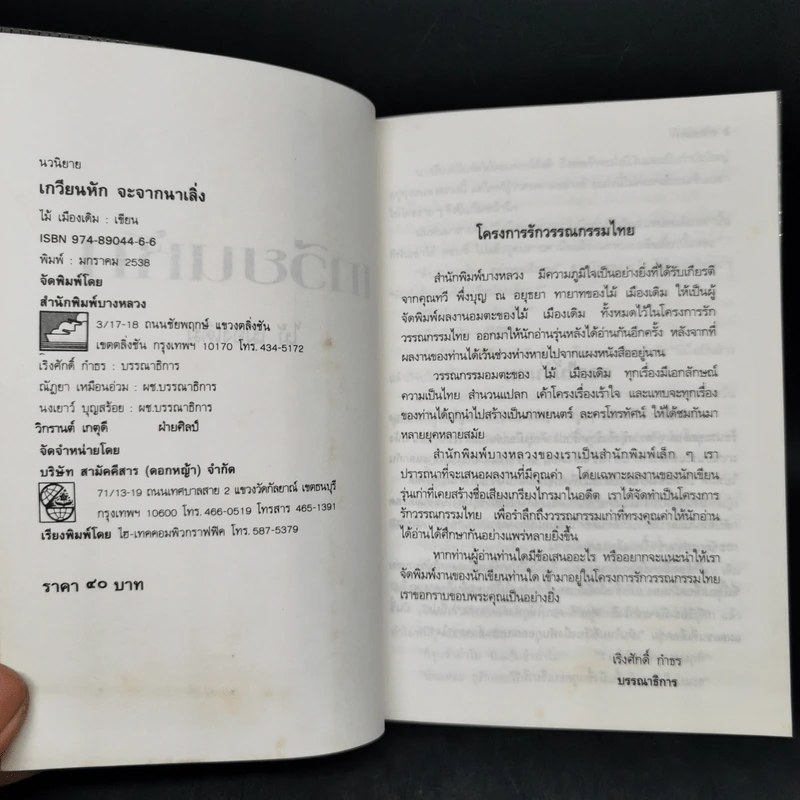 นวนิยาย
เกวียนหัก จะจากนาเลิ่ง
ไม้ เมืองเดิม : เขียน
ISBN 974-89044-6-6
พิมพ์ : มกราคม 2538
จัดพิมพ์โดย
สำนักพิมพ์บางหลวง
3/17-18 ถนนชัยพฤกษ์ แขวงตลิ่งชัน
เขตตลิ่งชัน กรุงเทพฯ 10170 โทร. 434-5172
เริงศักดิ์ กำธร : บรรณาธิการ
ณัฏยา เหมือนอ่วม : ผช.บรรณาธิการ
นงเยาว์ บุญสร้อย : ผช.บรรณาธิการ
วิกรานต์ เกตุดี ฝ่ายศิลป์
จัดจำหน่ายโดย
บริษัท สามัคคีสาร (ดอกหญ้า) จำกัด
71/13-19 ถนนเทศบาลสาย 2 แขวงวัดกัลยาณ์ เขตธนบุรี
กรุงเทพฯ 10600 โทร. 466-0519 โทรสาร 465-1391
เรียงพิมพ์โดย : ไฮ-เทคคอมพิวกราฟฟิค โทร. 587-5379
ราคา ๔๐ บาท
โครงการรักวรรณกรรมไทย
สำนักพิมพ์บางหลวง มีความภูมิใจเป็นอย่างยิ่งที่ได้รับเกียรติ
จากคุณทวี พึ่งบุญ ณ อยุธยา ทายาทของไม้ เมืองเดิม ให้เป็นผู้
จัดพิมพ์ผลงานอมตะของ ไม้ เมืองเดิม ทั้งหมดไว้ในโครงการรัก
วรรณกรรมไทย ออกมาให้นักอ่านรุ่นหลังได้อ่านกันอีกครั้ง หลังจากที่
ผลงานของท่านได้เว้นช่วงห่างหายไปจากแผงหนังสืออยู่นาน
วรรณกรรมอมตะของ ไม้ เมืองเดิม ทุกเรื่องมีเอกลักษณ์
ความเป็นไทย สำนวนแปลก เค้าโครงเรื่องเร้าใจ และแทบจะทุกเรื่อง
ของท่านได้ถูกนำไปสร้างเป็นภาพยนตร์ ละครโทรทัศน์ ให้ได้ชมกันมา
หลายยุคหลายสมัย
สำนักพิมพ์บางหลวงของเราเป็นสำนักพิมพ์เล็ก ๆ เรา
ปรารถนาที่จะเสนอผลงานที่มีคุณค่า โดยเฉพาะผลงานของนักเขียน
รุ่นเก่าที่เคยสร้างชื่อเสียงเกรียงไกรมาในอดีต เราได้จัดทำเป็นโครงการ
รักวรรณกรรมไทย เพื่อรำลึกถึงวรรณกรรมเก่าที่ทรงคุณค่าให้นักอ่าน
ได้อ่านได้ศึกษากันอย่างแพร่หลายยิ่งขึ้น
หากท่านผู้อ่านท่านใดมีข้อเสนออะไร หรืออยากจะแนะนำให้เรา
จัดพิมพ์งานของนักเขียนท่านใด เข้ามาอยู่ในโครงการรักวรรณกรรมไทย
เราขอกราบขอบพระคุณเป็นอย่างยิ่ง
เริงศักดิ์ กำธร
บรรณาธิการ